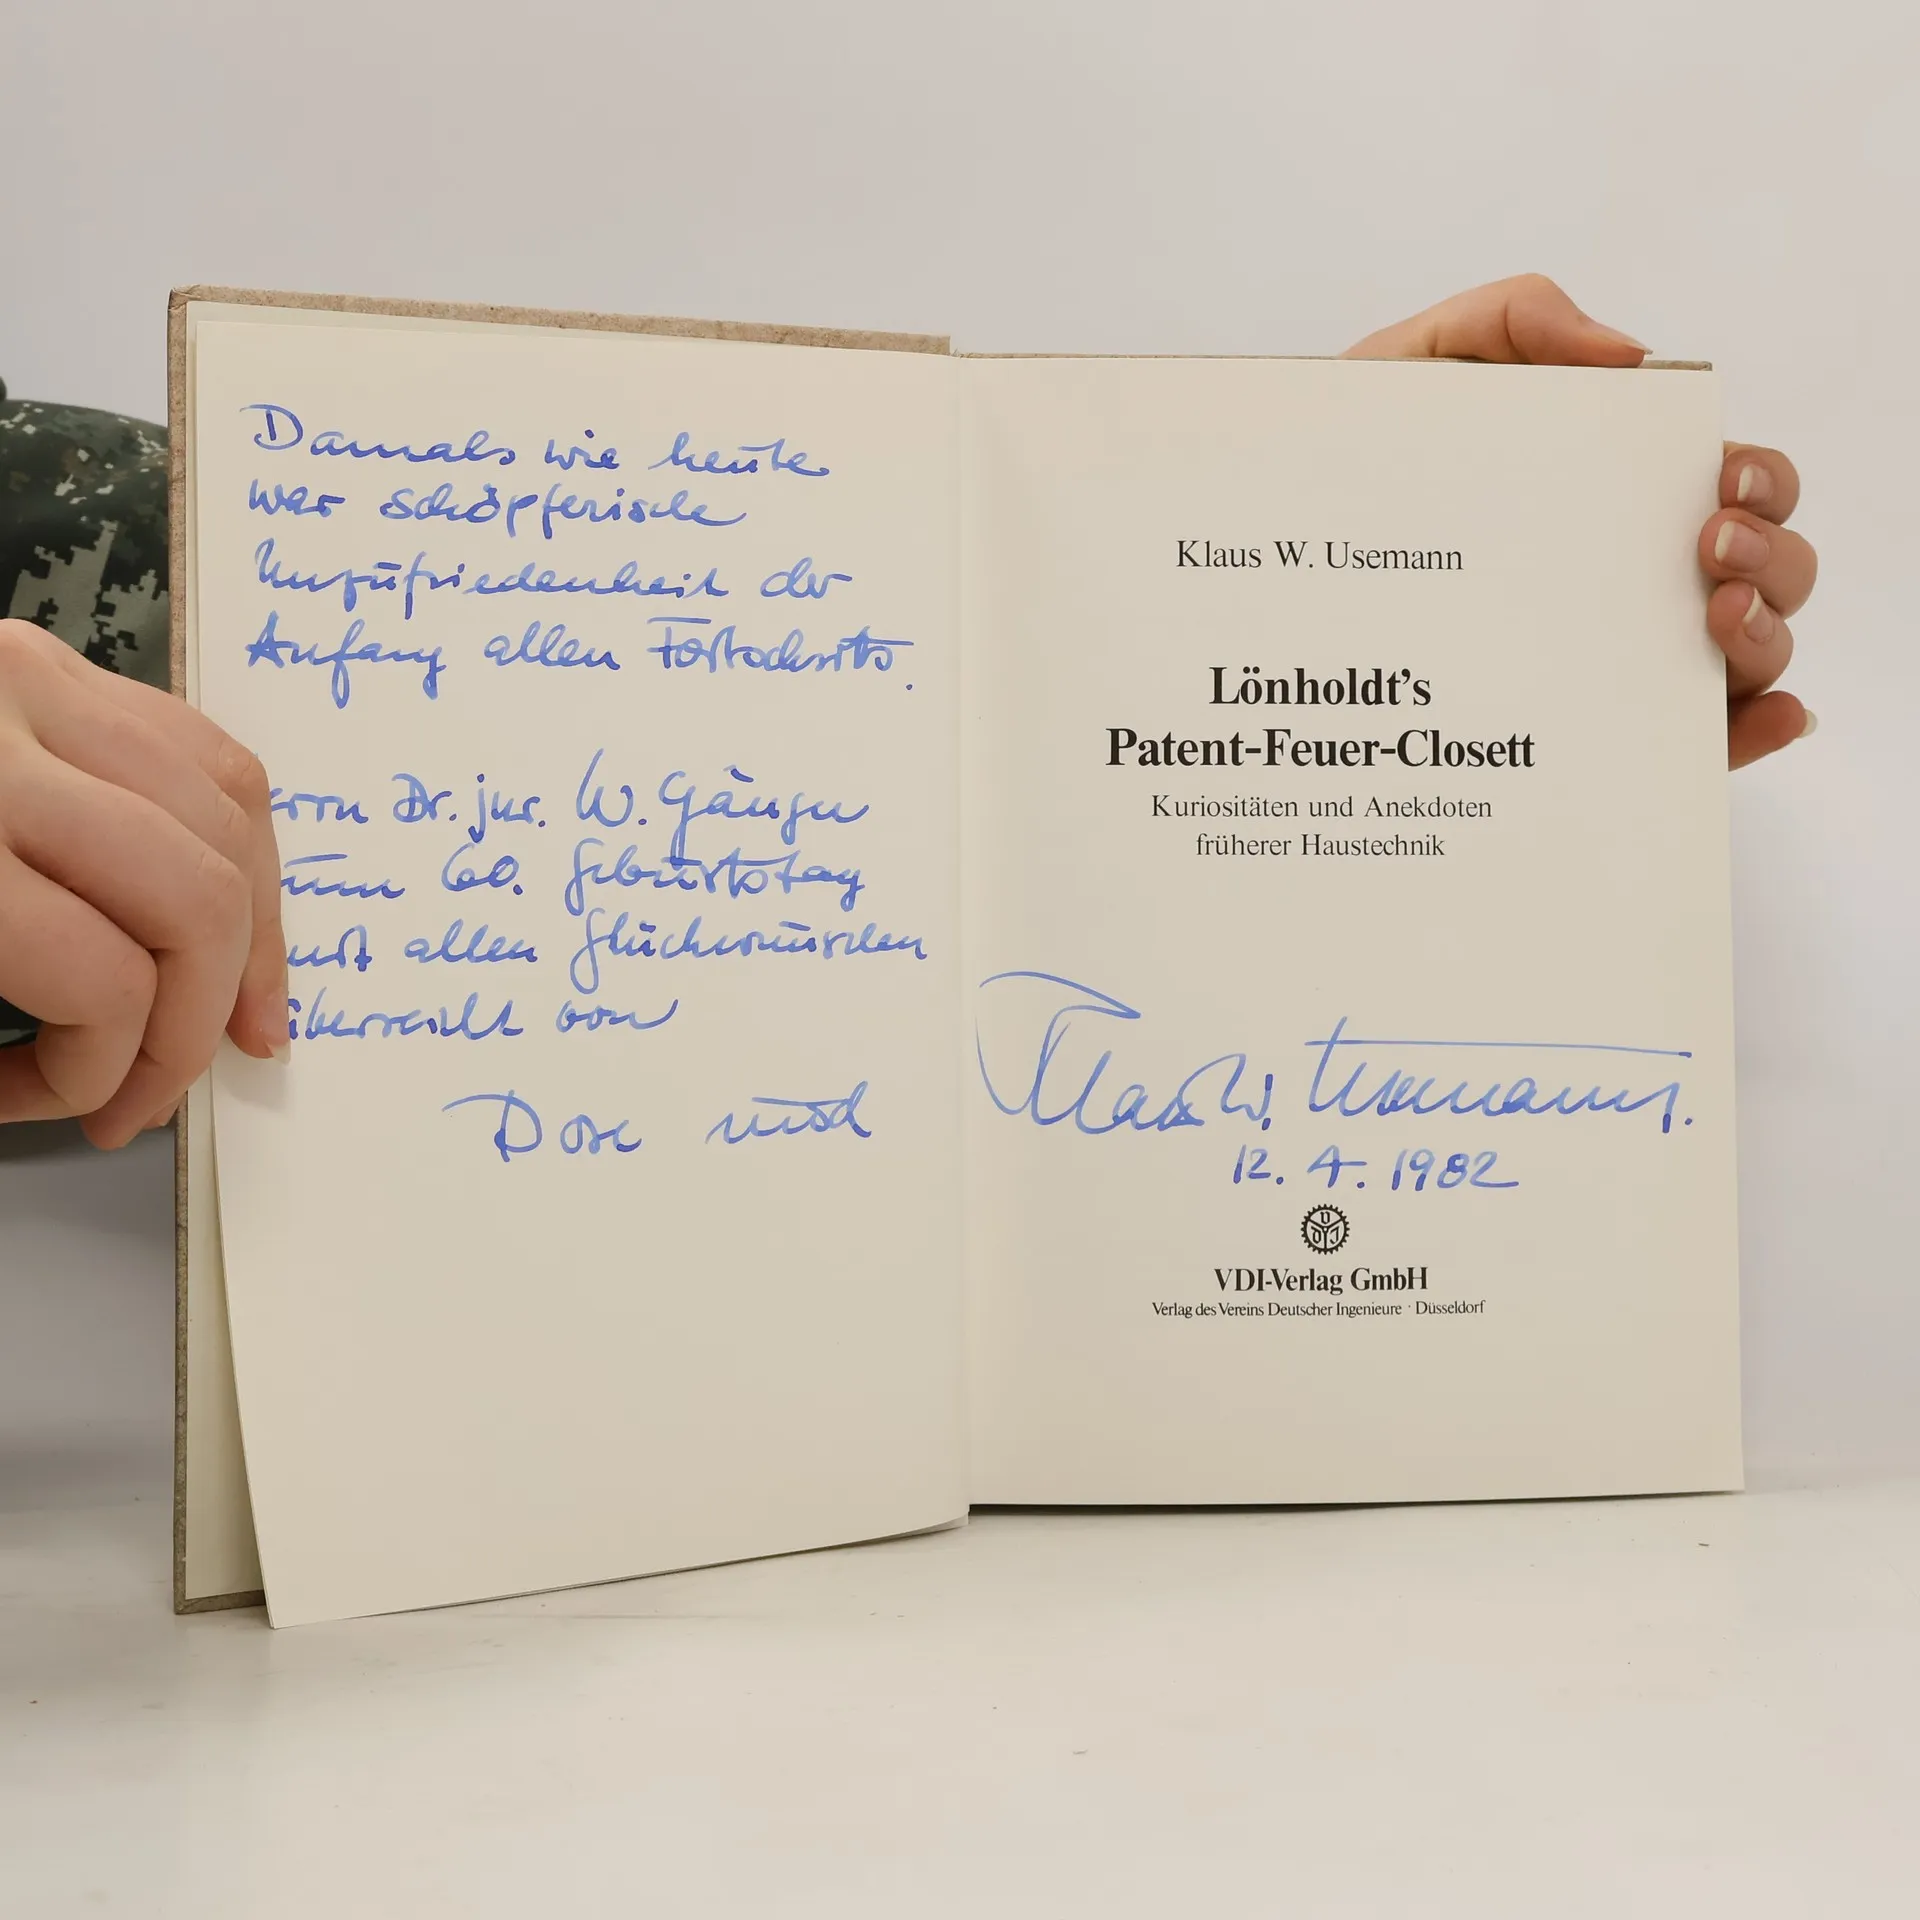 Damals wie heute
war schöpferische
Unzufriedenheit der
Anfang allen Fortschritts.
errn Dr. jur. W. Gänger
zum 60. Geburtstag
mit allen Glückwünschen
überreicht von
und
Klaus W. Usemann
Lönholdt’s
Patent-Feuer-Closett
Kuriositäten und Anekdoten
früherer Haustechnik
Klaus W. Usemann.
12. 4. 1982
VDI
VDI-Verlag GmbH
Verlag des Vereins Deutscher Ingenieure · Düsseldorf